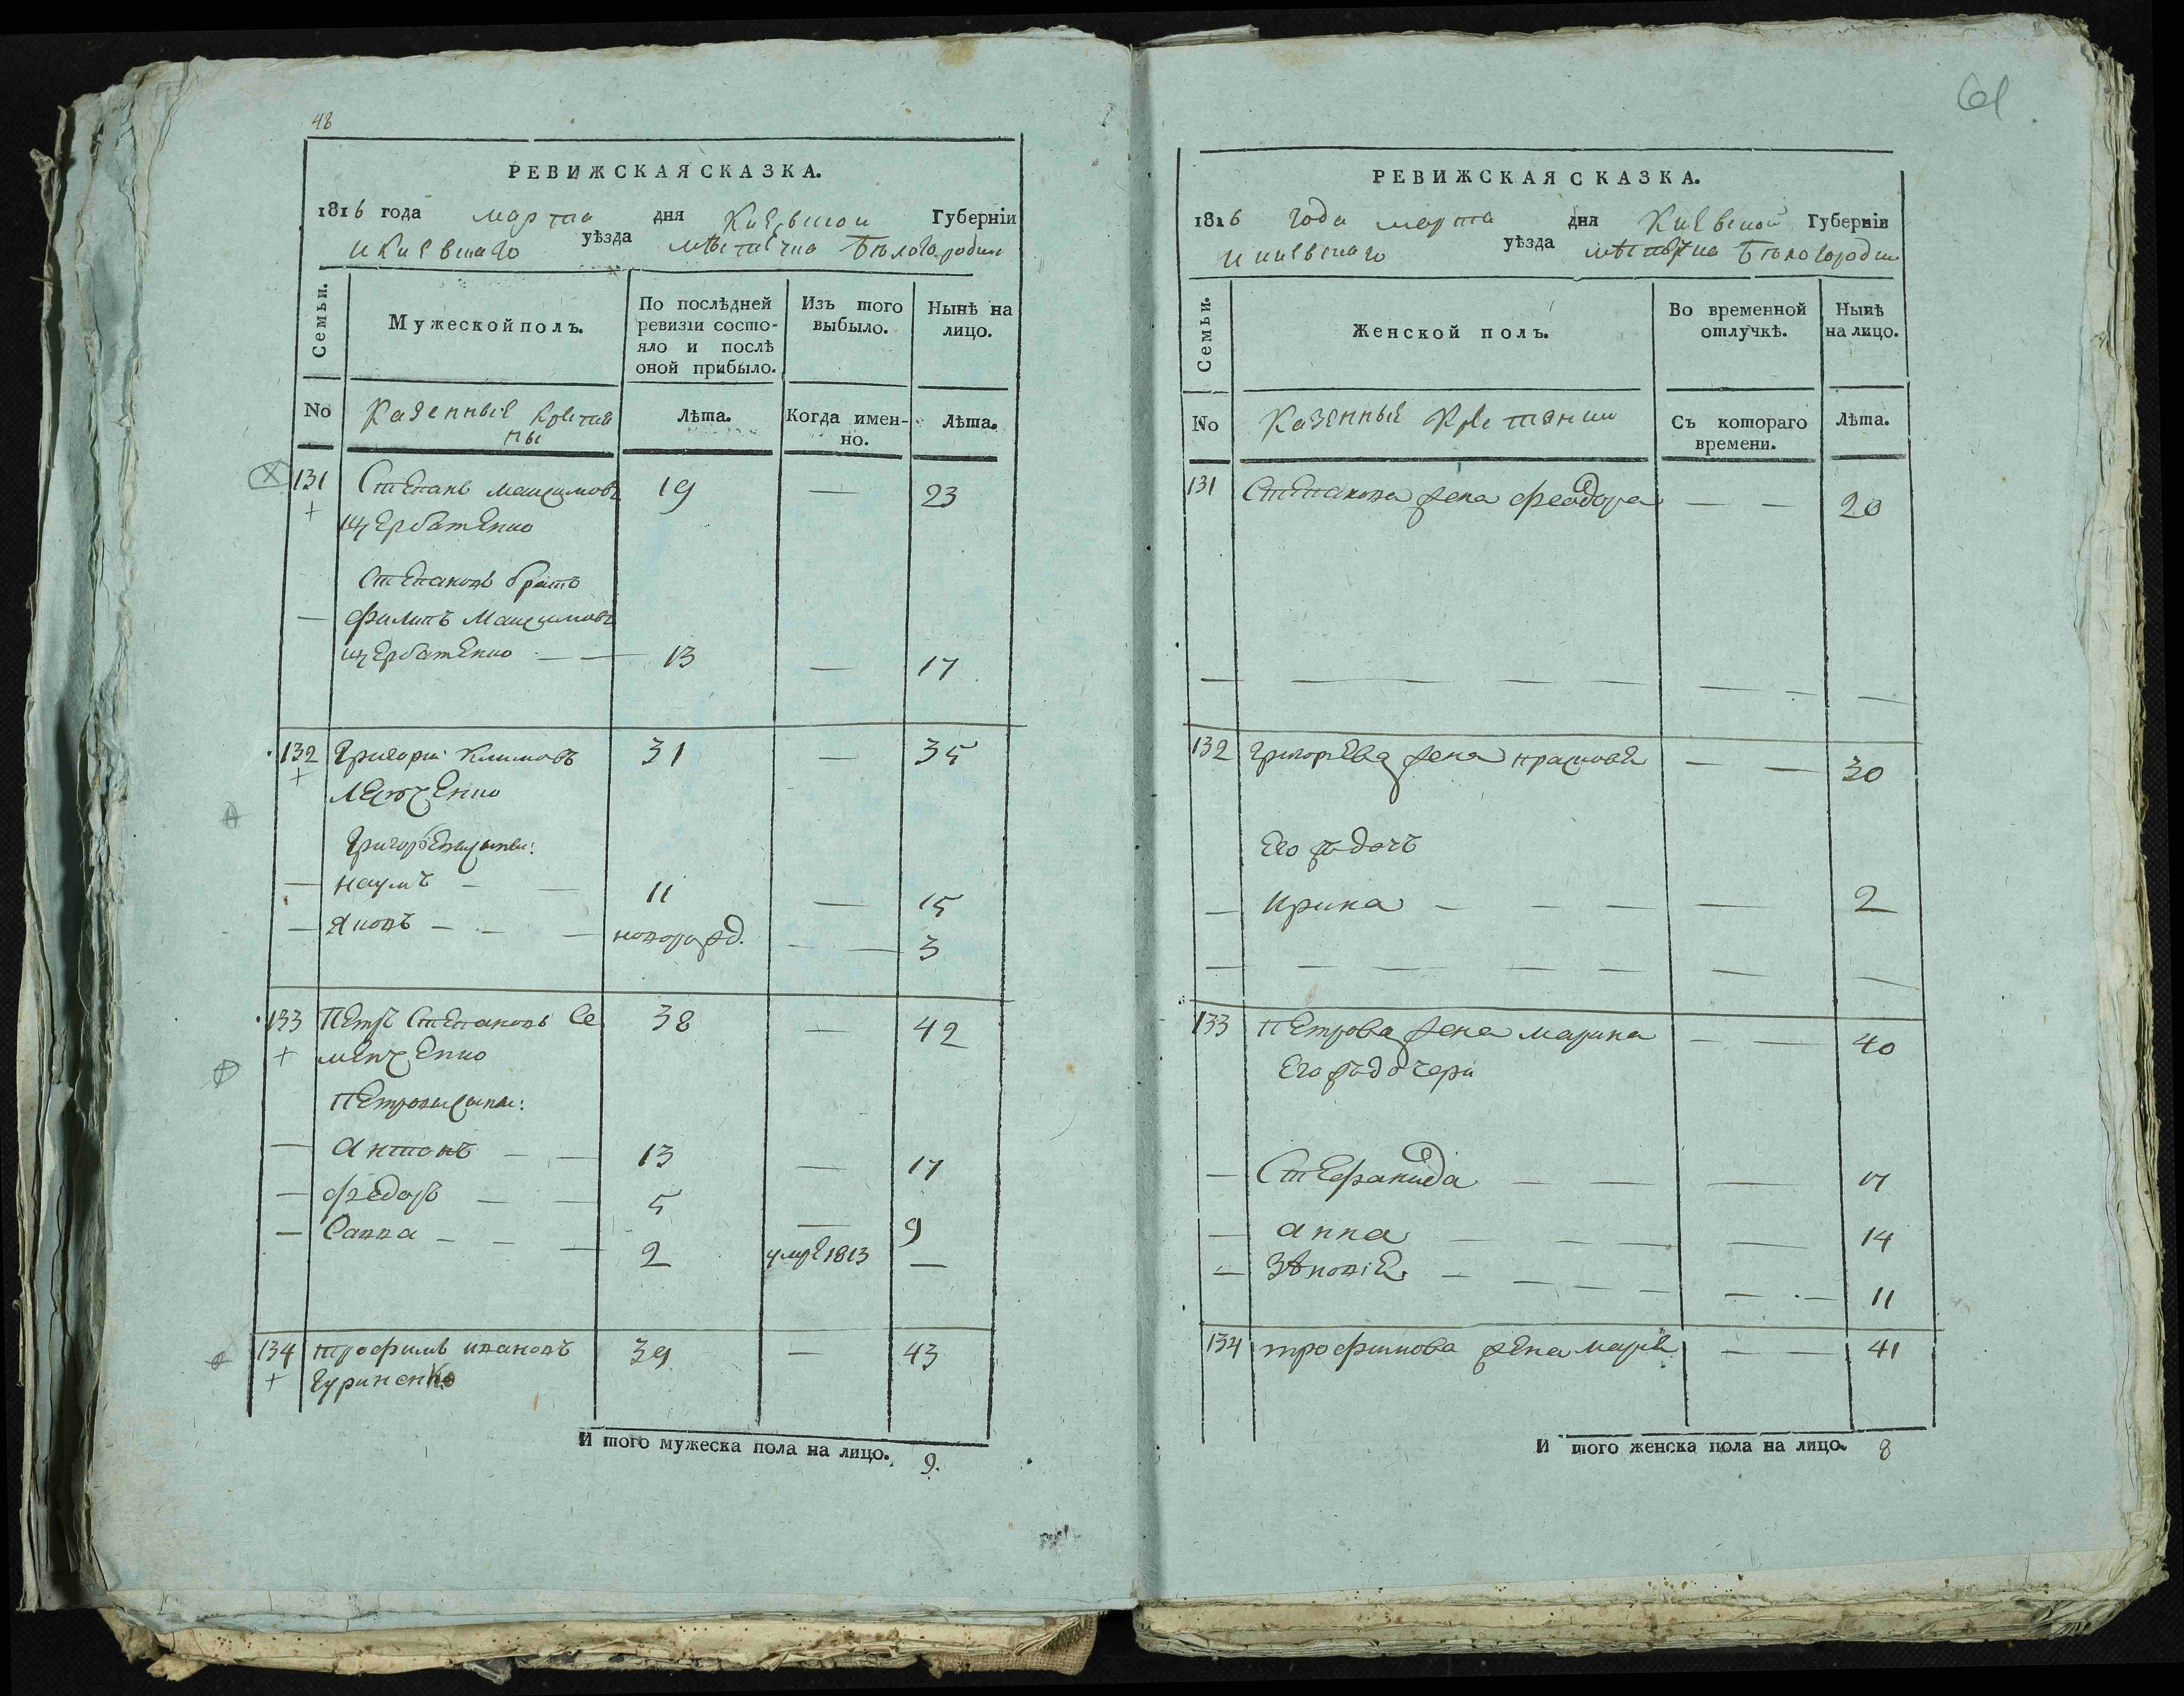 48
РЕВИЖСКАЯ СКАЗКА.
1816 года марта дня Киевской Губерніи
и Киевскаго уѣзда мѣстечка Бѣлогородки
Семьи.
Мужеской полъ.
По послѣдней ревизіи состо-
яло и послѣ
оной прибыло.
Изъ того
выбыло.
Нынѣ на
лицо.
No
Казенные крестья
ны
Лѣта.
Когда имен-
но.
Лѣта.
131 Степанъ Максимовъ 19 — 23
Щербатенко
Степановъ братъ
— Филипъ Максимовъ
Щербатенко — — 13 — 17
132 Григорій Климовъ 31 — 35
Григорьевы сыны:
— Наумъ — — 11 — 15
— Яковъ — — — новорожд. — — 3
133 Петръ Степановъ Се 38 — 42
менченко
Петровы сыны:
— Антонъ — — 13 — 17
— Федоръ — — 5 — 9
— Савва — — — 2 умре 1813 —
134 Трофимъ Ивановъ 39 — 43
Гуриненко
И того мужеска пола на лицо. 9.
61
РЕВИЖСКАЯ СКАЗКА.
1816 года марта дня Киевской Губерніи
и Киевскаго уѣзда мѣстечка Бѣлогородки
Семьи.
Женской полъ.
Во временной
отлучкѣ.
Нынѣ
на лицо.
No
Казенные крестянки
Съ котораго
времени.
Лѣта.
131 Степанова жена Феодора — — 20
132 Григорьева жена Прасковья — — 30
Его жъ дочъ
— Ирина — — — — 2
133 Петрова жена Марина — — 40
Его жъ дочери
— Стефанида — — — 17
— Анна — — — — 14
— Зѣновіе — — — — — · — 11
134 Трофимова жена Марья — — 41
И того женска пола на лицо. 8